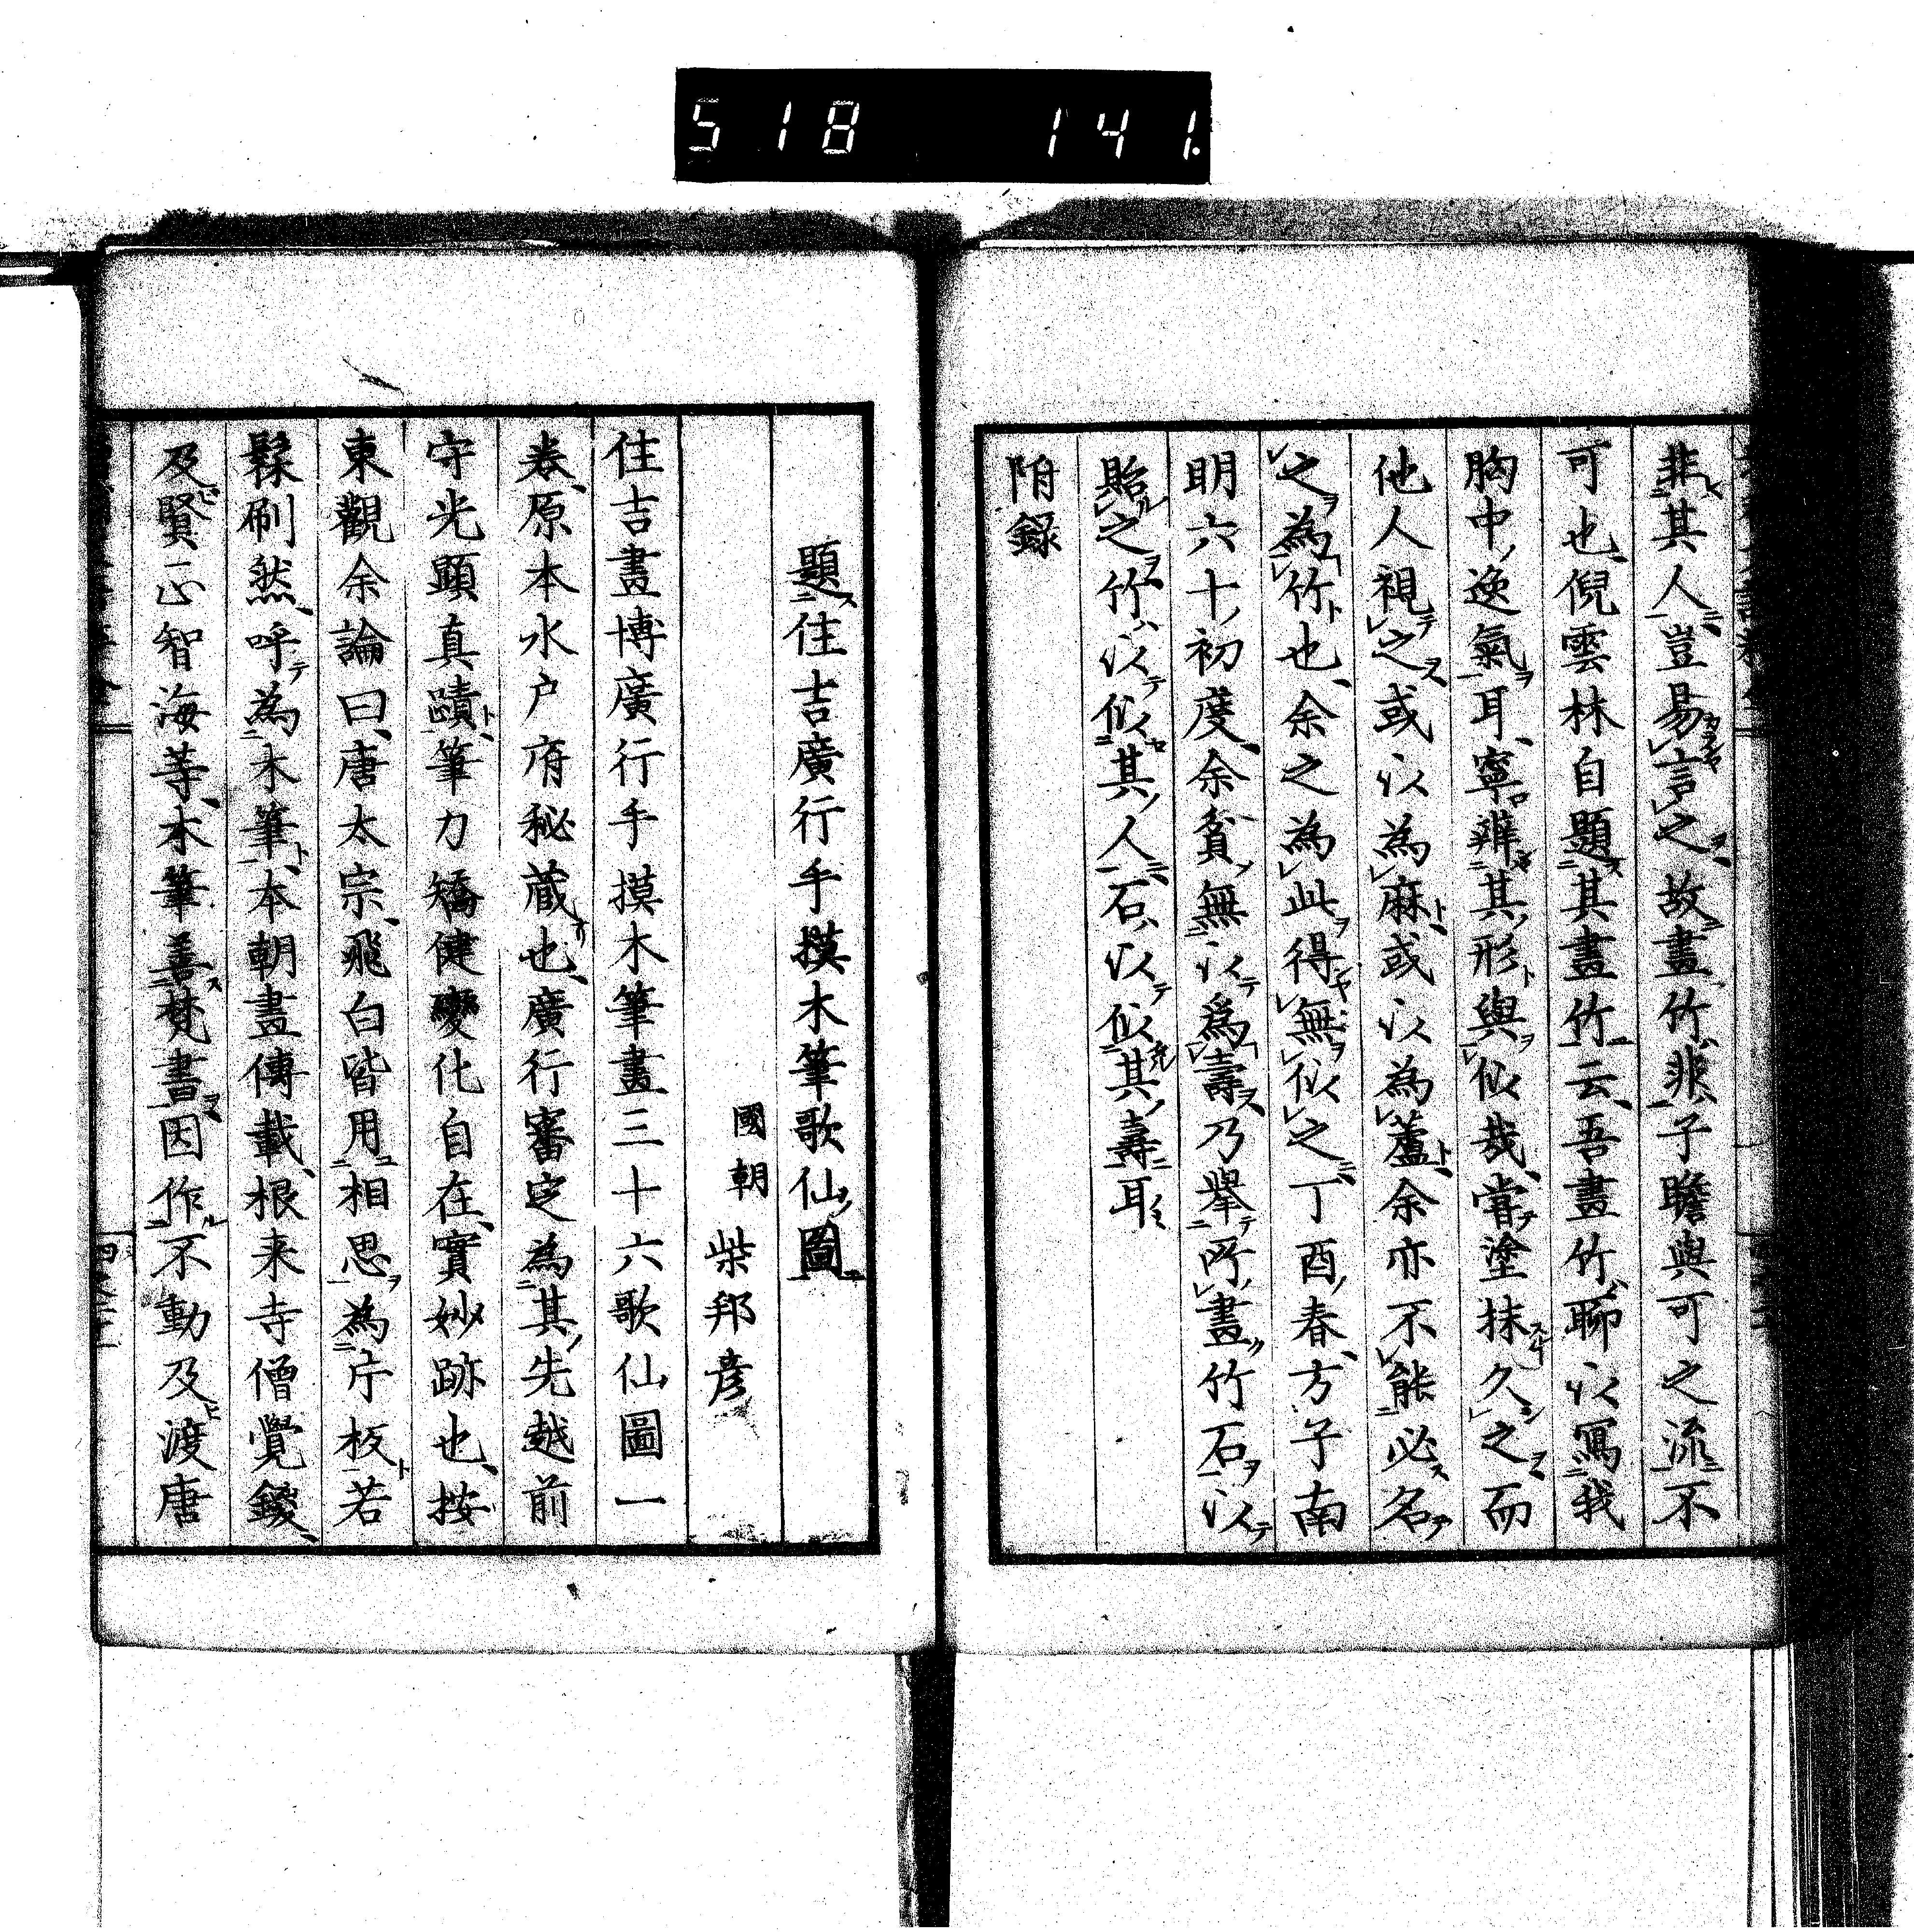 518 141.
非其人豈易言之故畫竹非子瞻與可之流不
可也倪雲林自題其畫竹云吾畫竹聊以寫我
胸中逸氣耳寧辨其形與似哉嘗塗抹久之而
他人視之或以為麻或以為蘆余亦不能必名
之為竹也余之為此得無似之丁酉春方子南
明六十初度余貧無以爲壽乃舉所畫竹石以
貽之竹以似其人石以似其壽耳
附録
題住吉廣行手摸木筆歌仙圖
國朝 柴邦彦
住吉畫博廣行手摸木筆畫三十六歌仙圖一
卷原本水户府秘蔵也廣行審定為其先越前
守光顕真蹟筆力矯健變化自在實妙跡也按
東觀余論曰唐太宗飛白皆用相思為片板若
髹刷然呼為木筆本朝畫傳載根来寺僧覺鑁
及賢心智海等木筆善梵書因作不動及渡唐